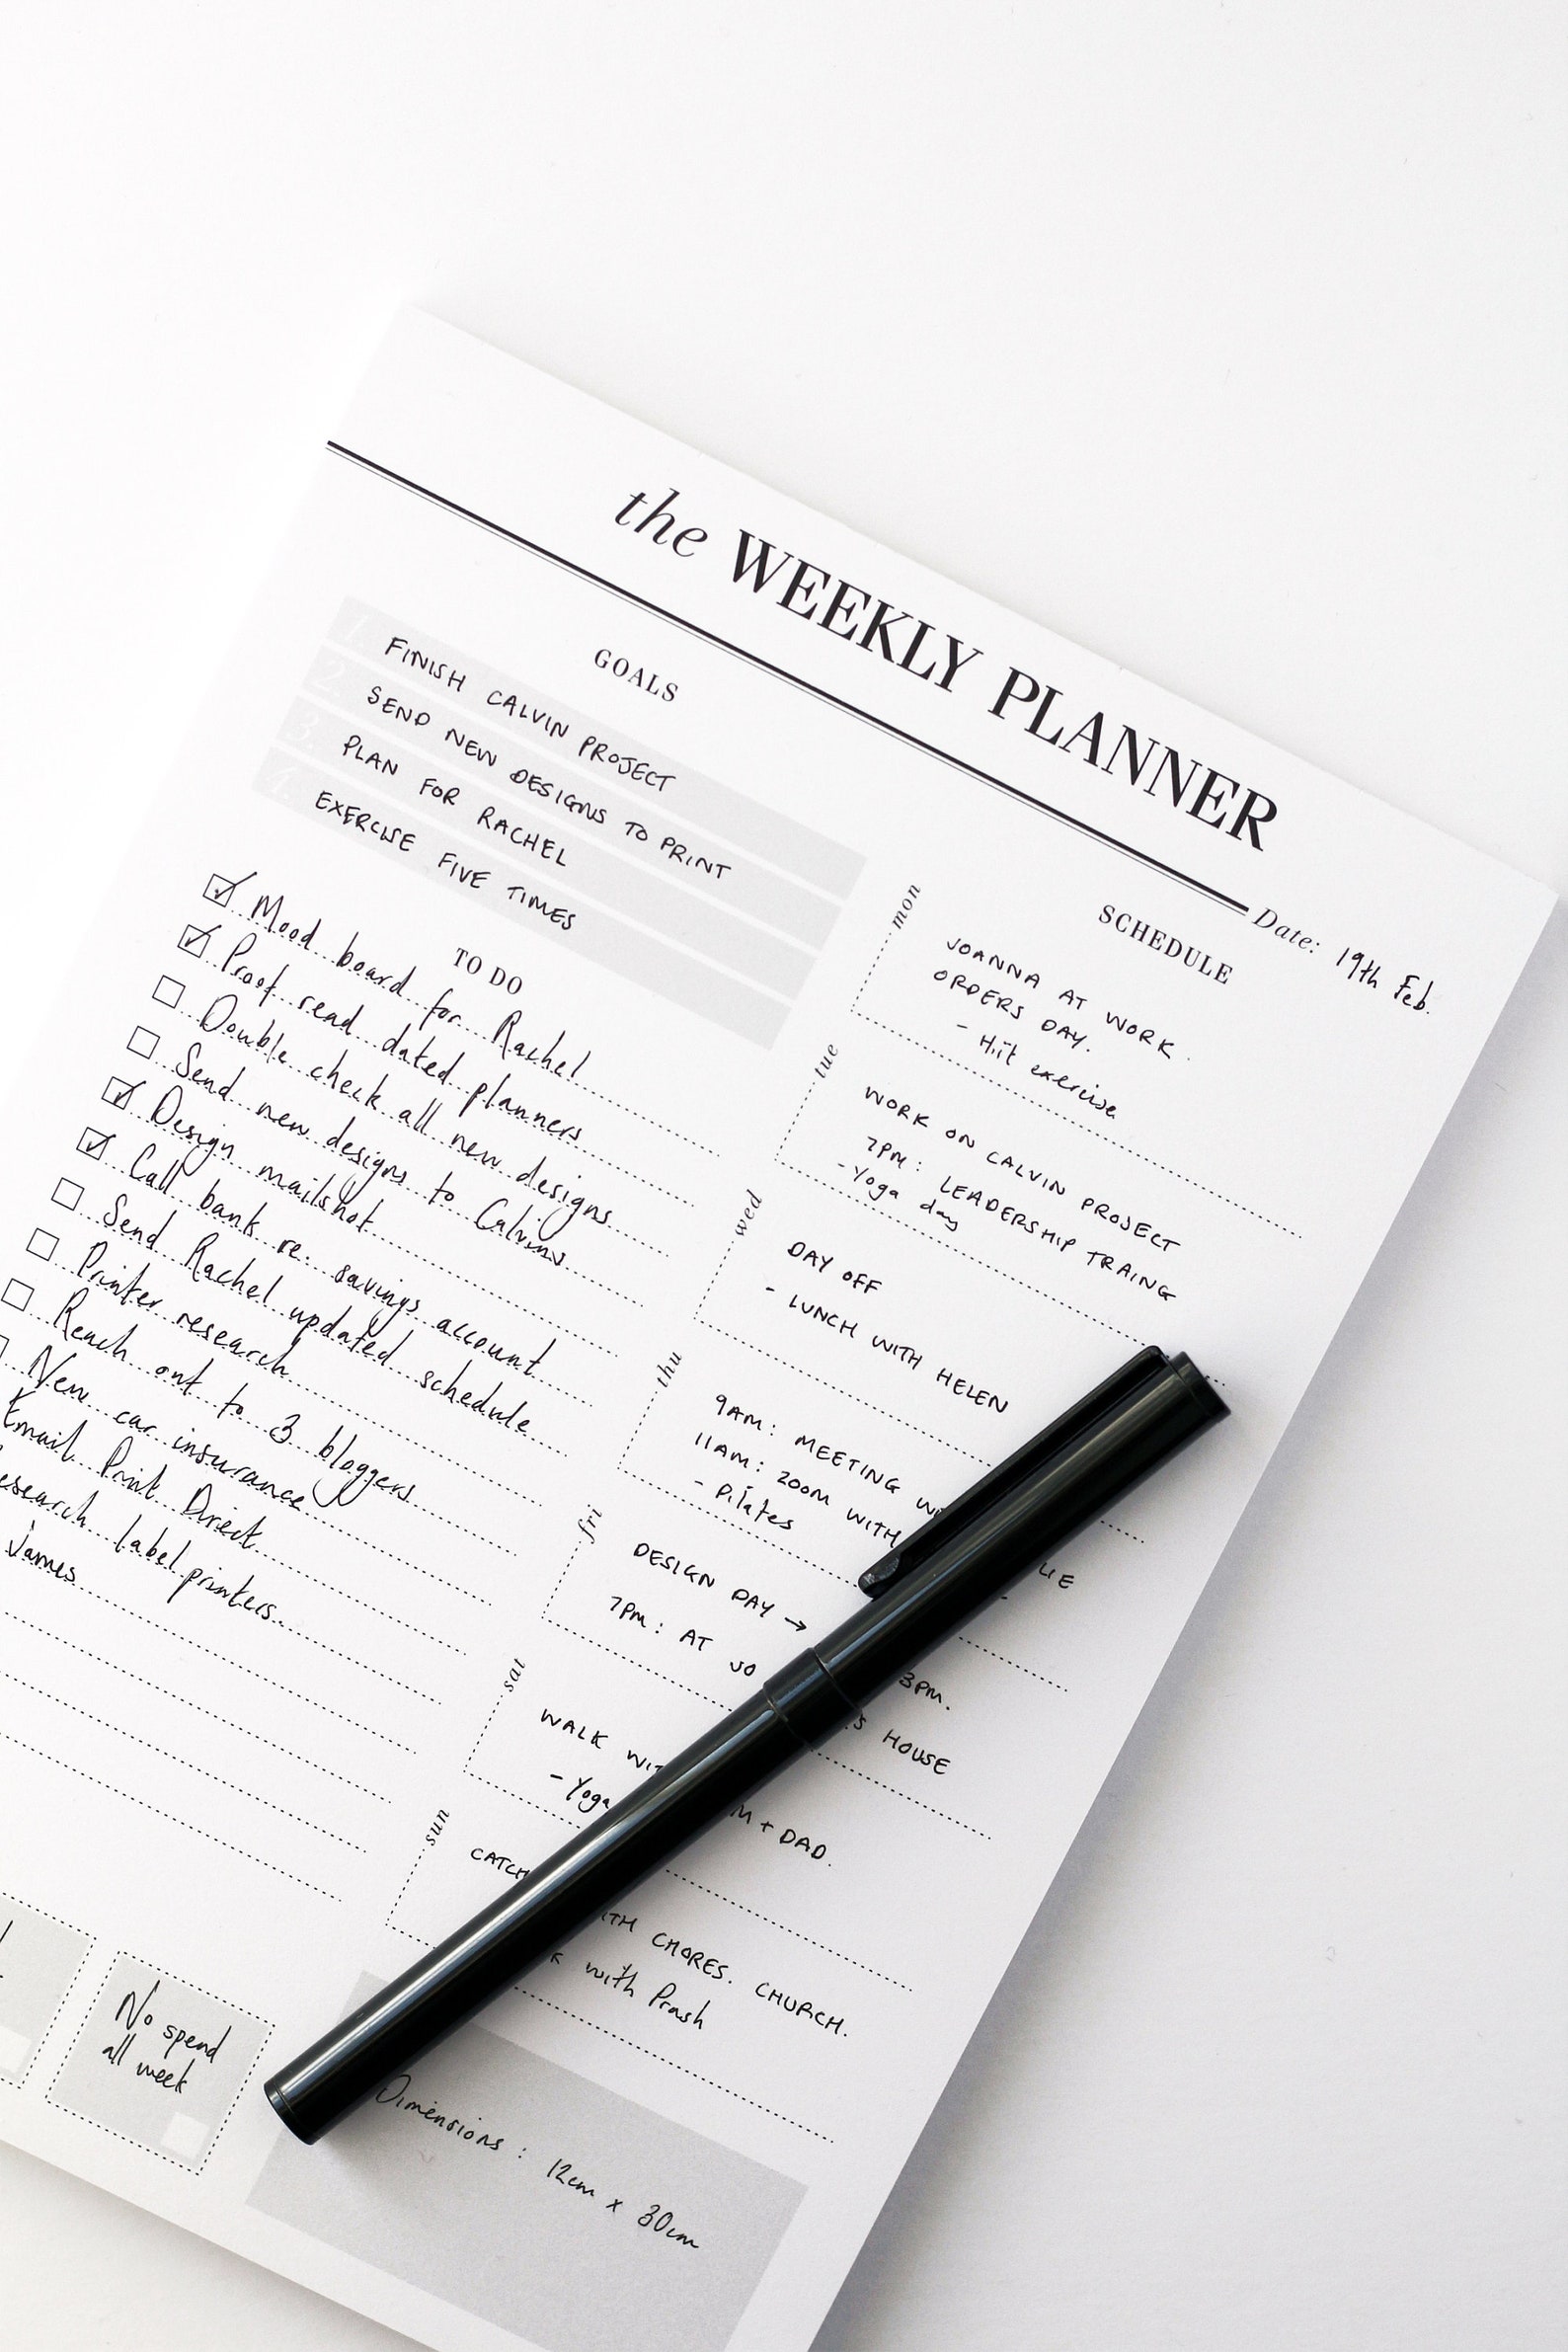 the WEEKLY PLANNER
Date: 19th Feb.
GOALS
1. FINISH CALVIN PROJECT
2. SEND NEW DESIGNS TO PRINT
3. PLAN FOR RACHEL
4. EXERCISE FIVE TIMES
TO DO
Mood board for Rachel
Proof read dated planners
Double check all new designs
Send new designs to Calvins
Design mailshot
Call bank re. savings account
Send Rachel updated schedule
Printer research
Reach out to 3 bloggers
New car insurance
Email Print Direct
label printers
James
No spend
all week
SCHEDULE
mon
JOANNA AT WORK.
ORDERS DAY.
- Hiit exercise
tue
WORK ON CALVIN PROJECT
7PM: LEADERSHIP TRAING
- Yoga day
wed
DAY OFF
- LUNCH WITH HELEN
thu
9AM: MEETING
11AM: ZOOM WITH
- Pilates
fri
DESIGN DAY → 3PM.
7PM: AT HOUSE
sat
WALK + DAD.
- Yoga
sun
CATCH CHORES. CHURCH.
with Prash
Dimensions: 12cm x 30cm